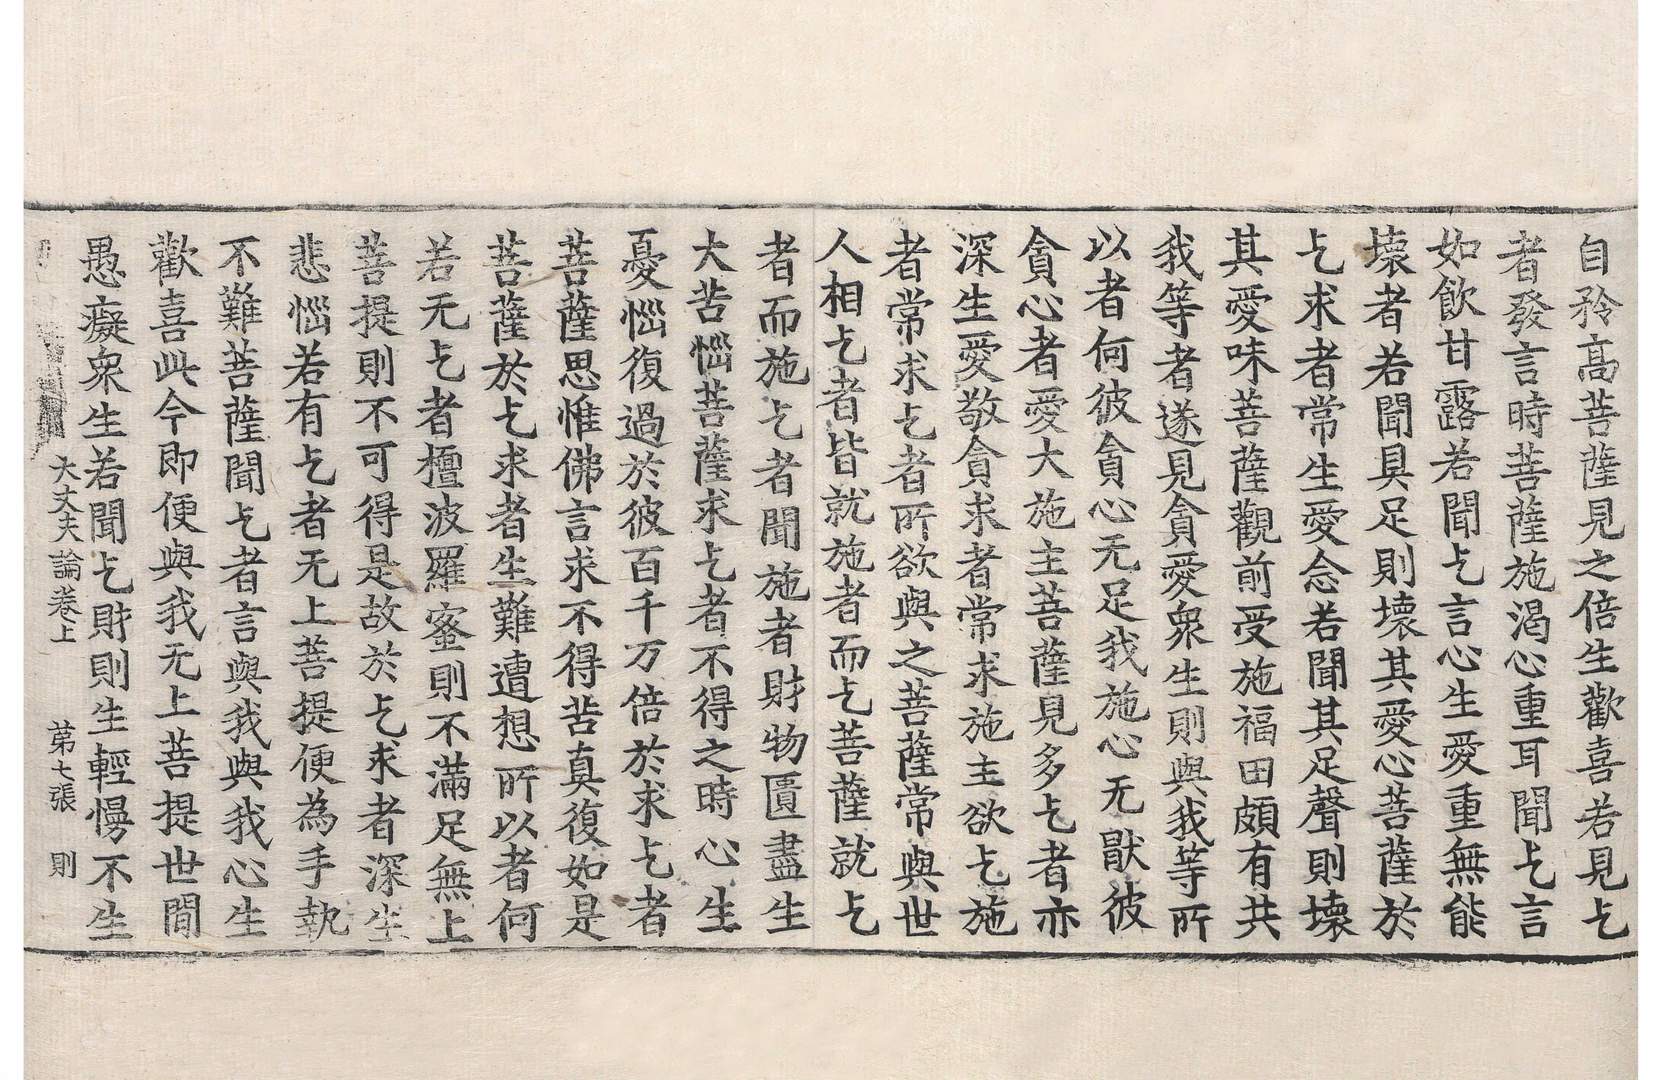 自矜高菩薩見之倍生歡喜若見乞
者發言時菩薩施渴心重耳聞乞言
如飮甘露若聞乞言心生愛重無能
壞者若聞具足則壞其愛心菩薩於
乞求者常生愛念若聞其足聲則壞
其愛味菩薩觀前受施福田頗有共
我等者遂見貪愛衆生則與我等所
以者何彼貪心无足我施心无猒彼
貪心者愛大施主菩薩見多乞者亦
深生愛敬貪求者常求施主欲乞施
者常求乞者所欲與之菩薩常與世
人相乞者皆就施者而乞菩薩就乞
者而施乞者聞施者財物匱盡生
大苦惱菩薩求乞者不得之時心生
憂惱復過於彼百千万倍於求乞者
菩薩思惟佛言求不得苦真復如是
菩薩於乞求者生難遭想所以者何
若无乞者檀波羅蜜則不滿足無上
菩提則不可得是故於乞求者深生
悲惱若有乞者无上菩提便為手執
不難菩薩聞乞者言與我與我心生
歡喜此今即便與我无上菩提世間
愚癡衆生若聞乞財則生輕慢不生
大丈夫論卷上 第七張 則